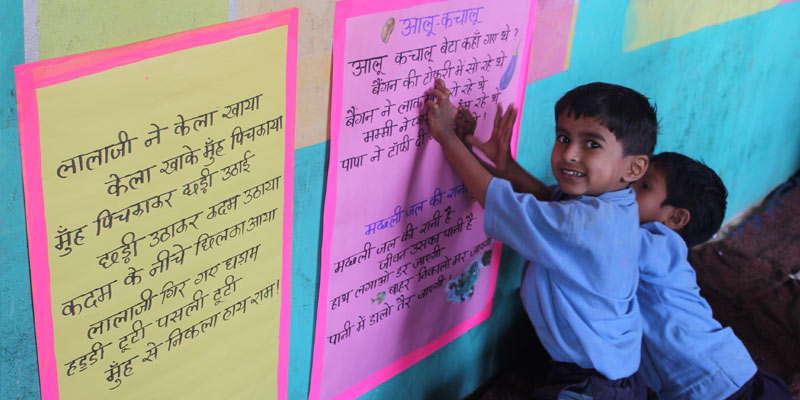 लालाजी ने केला खाया
केला खाके मुँह पिचकाया
मुँह पिचकाकर छड़ी उठाई
छड़ी उठाकर कदम उठाया
कदम के नीचे छिलका आया
लालाजी गिर गए धड़ाम
हड्डी टूटी पसली टूटी
मुँह से निकला हाय राम!
आलू-कचालू
आलू कचालू बेटा कहाँ गए थे ?
बैंगन की टोकरी में सो रहे थे
बैंगन ने लात रो रहे थे
मम्मी ने रहे थे
पापा ने टॉफी दी
मछली जल की रानी
मछली जल की रानी है
जीवन उसका पानी है
हाथ लगाओ डर जाएगी
बाहर निकालो मर जाएगी
पानी में डालो तैर जाएगी